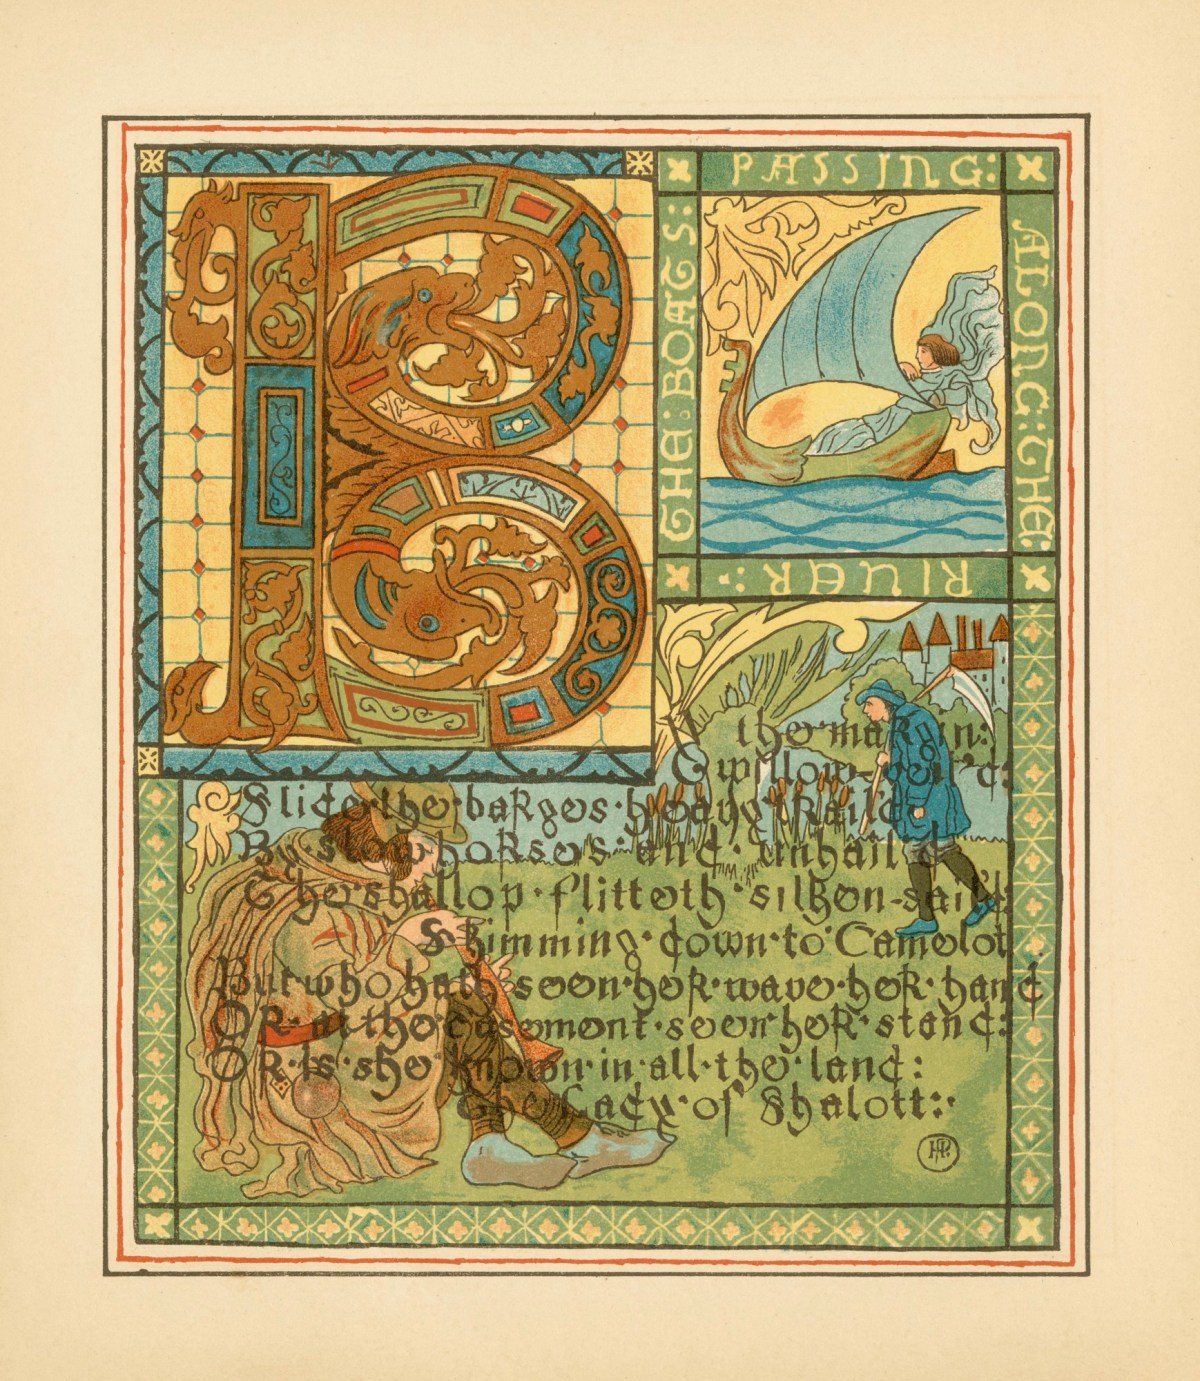 THE:BOATS:
PASSING:
ALONG:THE:
RIVER:·
BY the margin:
willow-veil'd:
Slide·the·barges·heavy·trail'd
By·slow·horses·and·unhail'd
The shallop·flitteth·silken-sail'd:
Skimming·down·to·Camelot
But who hath seen·her·wave·her·hand
Or·at the casement·seen her·stand:
Or·is·she known·in·all·the·land:
The Lady·of Shalott:·
HP